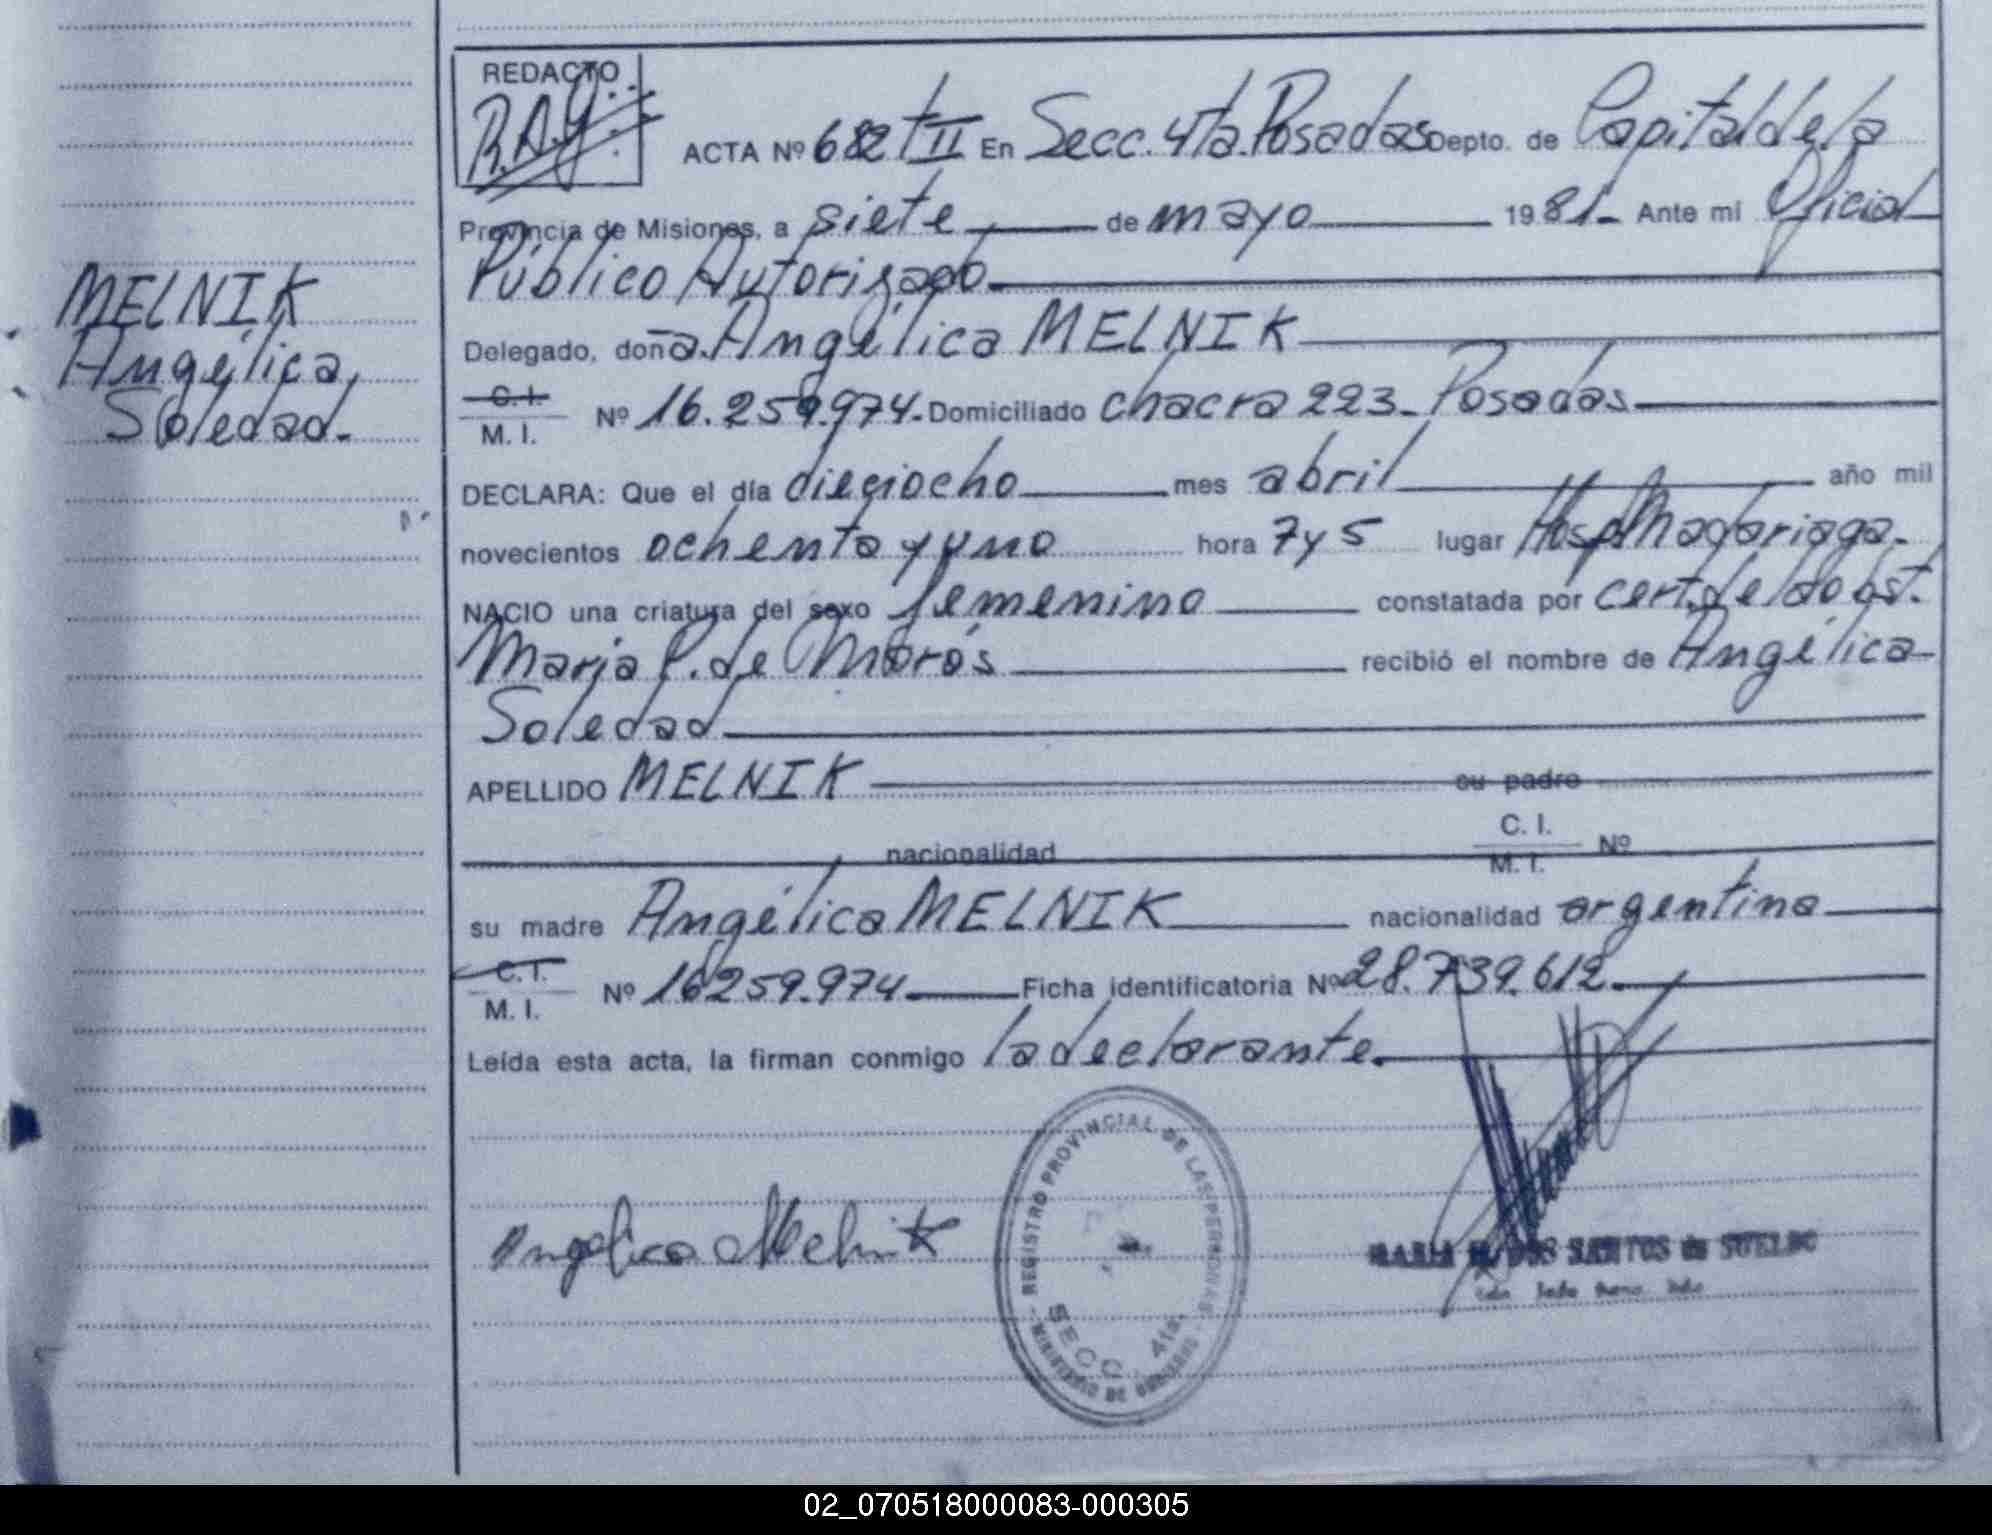 REDACTO
R.A.G.
ACTA Nº 682 TII En Secc. 4ta. Posadas Depto. de Capital de la
Provincia de Misiones, a siete de mayo 1981- Ante mi Oficial
Público Autorizado
MELNIK
Angélica
Soledad.-
Delegado, doña. Angélica MELNIK
C.I.
M. I. Nº 16.259.974.- Domiciliado chacra 223- Posadas
DECLARA: Que el día dieciocho mes abril año mil
novecientos ochenta y uno hora 7 y 5 lugar Hosp. Madariaga.
NACIO una criatura del sexo femenino constatada por cert. de la obst.
Maria P. de Morós recibió el nombre de Angélica
Soledad
APELLIDO MELNIK su padre
nacionalidad C. I.
M. I. Nº
su madre Angélica MELNIK nacionalidad argentina
C.I.
M. I. Nº 16259.974 Ficha identificatoria Nº 28.739.612.
Leída esta acta, la firman conmigo la declarante.
Angelica Melnik
REGISTRO PROVINCIAL DE LAS PERSONAS
SECC. 4ta.
MINISTERIO DE GOBIERNO
MARIA DOS SANTOS de SUELDO
02_070518000083-000305